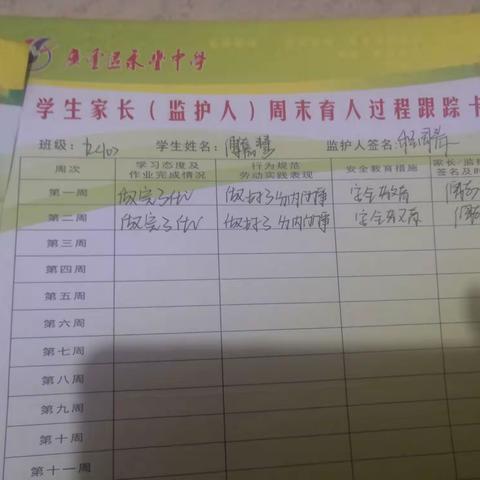 永丰中学
学生家长（监护人）周末育人过程跟踪卡
班级： 学生姓名： 监护人签名：
周次 学习态度及作业完成情况 行为规范劳动实践表现 安全教育措施 家长/监 签名及时
第一周 做完了作业 做好了分内的事 安全教育
第二周 做完了作业 做好了分内的事 安全教育
第三周
第四周
第五周
第六周
第七周
第八周
第九周
第十周
第十一周